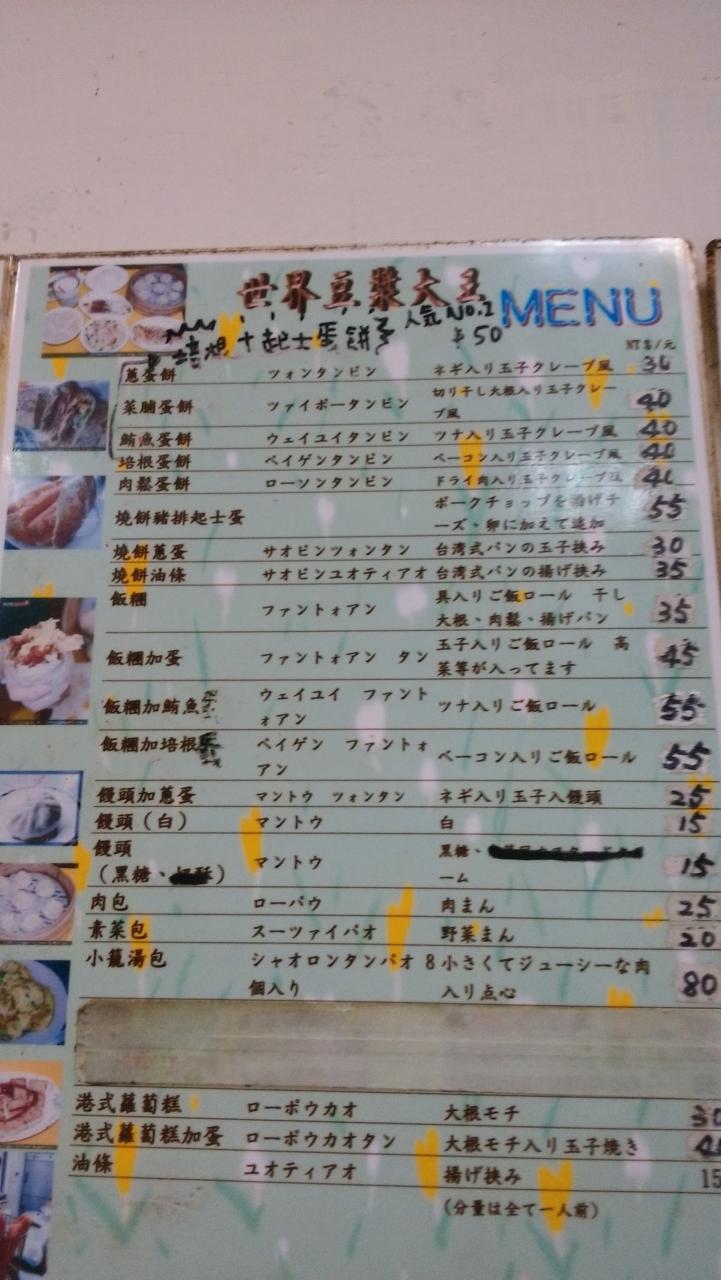 世界豆漿大王 MENU
培根十起士蛋餅 人気 No.1
$50
NT$/元
蔥蛋餅 ツォンタンピン ネギ入り玉子クレープ風 30
菜脯蛋餅 ツァイポータンピン 切り干し大根入り玉子クレープ風 40
鮪魚蛋餅 ウェイユイタンピン ツナ入り玉子クレープ風 40
培根蛋餅 ペイゲンタンピン ベーコン入り玉子クレープ風 40
肉鬆蛋餅 ローソンタンピン ドライ肉入り玉子クレープ風 40
燒餅豬排起士蛋 ポークチョップを揚げチーズ、卵に加えて追加 55
燒餅蔥蛋 サオビンツォンタン 台湾式パンの玉子挟み 30
燒餅油條 サオビンユオティアオ 台湾式パンの揚げ挟み 35
飯糰 ファントォアン 具入りご飯ロール 干し大根、肉鬆、揚げパン 35
飯糰加蛋 ファントォアン タン 玉子入りご飯ロール 高菜等が入ってます 45
飯糰加鮪魚 ウェイユイ ファントォアン ツナ入りご飯ロール 55
飯糰加培根 ペイゲン ファントォアン ベーコン入りご飯ロール 55
饅頭加蔥蛋 マントウ ツォンタン ネギ入り玉子入饅頭 25
饅頭(白) マントウ 白 15
饅頭(黑糖、 マントウ 黒糖、 ーム 15
肉包 ローパウ 肉まん 25
素菜包 スーツァイパオ 野菜まん 20
小籠湯包 シャオロンタンパオ 8個入り 小さくてジューシーな肉入り点心 80
港式蘿蔔糕 ローボウカオ 大根モチ
港式蘿蔔糕加蛋 ローボウカオタン 大根モチ入り玉子焼き
油條 ユオティアオ 揚げ挟み 15
(分量は全て一人前)